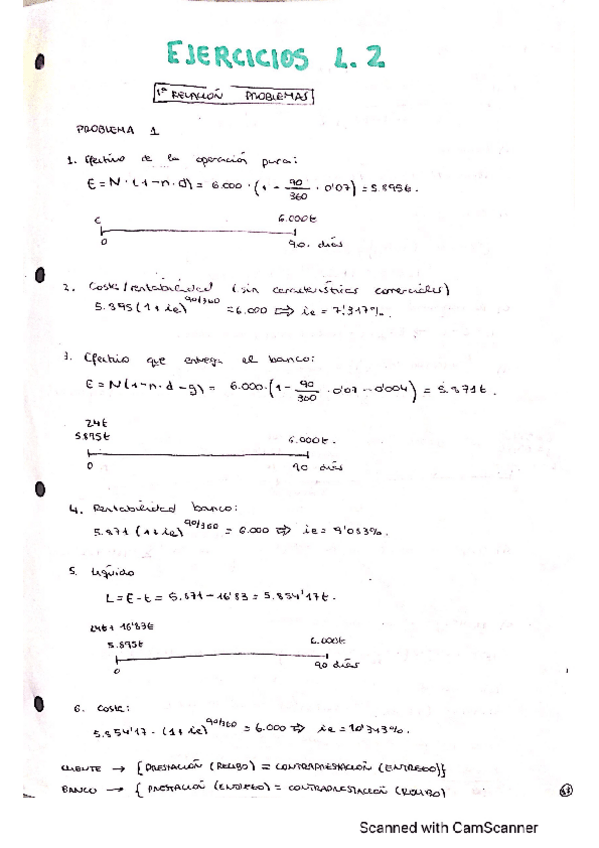 EJERCICIOS L.2
1ª RELACIÓN PROBLEMAS
PROBLEMA 1
1. Efectivo de la operación pura:
E = N · (1 - n · d) = 6.000 · (1 - 90/360 · 0'07) = 5.895€.
C 6.000€
0 90 días
2. Coste/rentabilidad (sin características comerciales)
5.895 (1 + ie)^90/360 = 6.000 ⇒ ie = 7'317%.
3. Efectivo que entrega el banco:
E = N (1 - n · d - g) = 6.000 · (1 - 90/360 · 0'07 - 0'004) = 5.871€.
24€
5.895€ 6.000€.
0 90 días
4. Rentabilidad banco:
5.871 (1 + ie)^90/360 = 6.000 ⇒ ie = 9'083%.
5. Líquido
L = E - t = 5.871 - 16'83 = 5.854'17€.
24€ + 16'83€
5.895€ 6.000€
0 90 días
6. Coste:
5.854'17 · (1 + ie)^90/360 = 6.000 ⇒ ie = 10'343%.
CLIENTE → { PRESTACIÓN (RECIBO) = CONTRAPRESTACIÓN (ENTREGO) }
BANCO → { PRESTACIÓN (ENTREGO) = CONTRAPRESTACIÓN (RECIBO)
Scanned with CamScanner